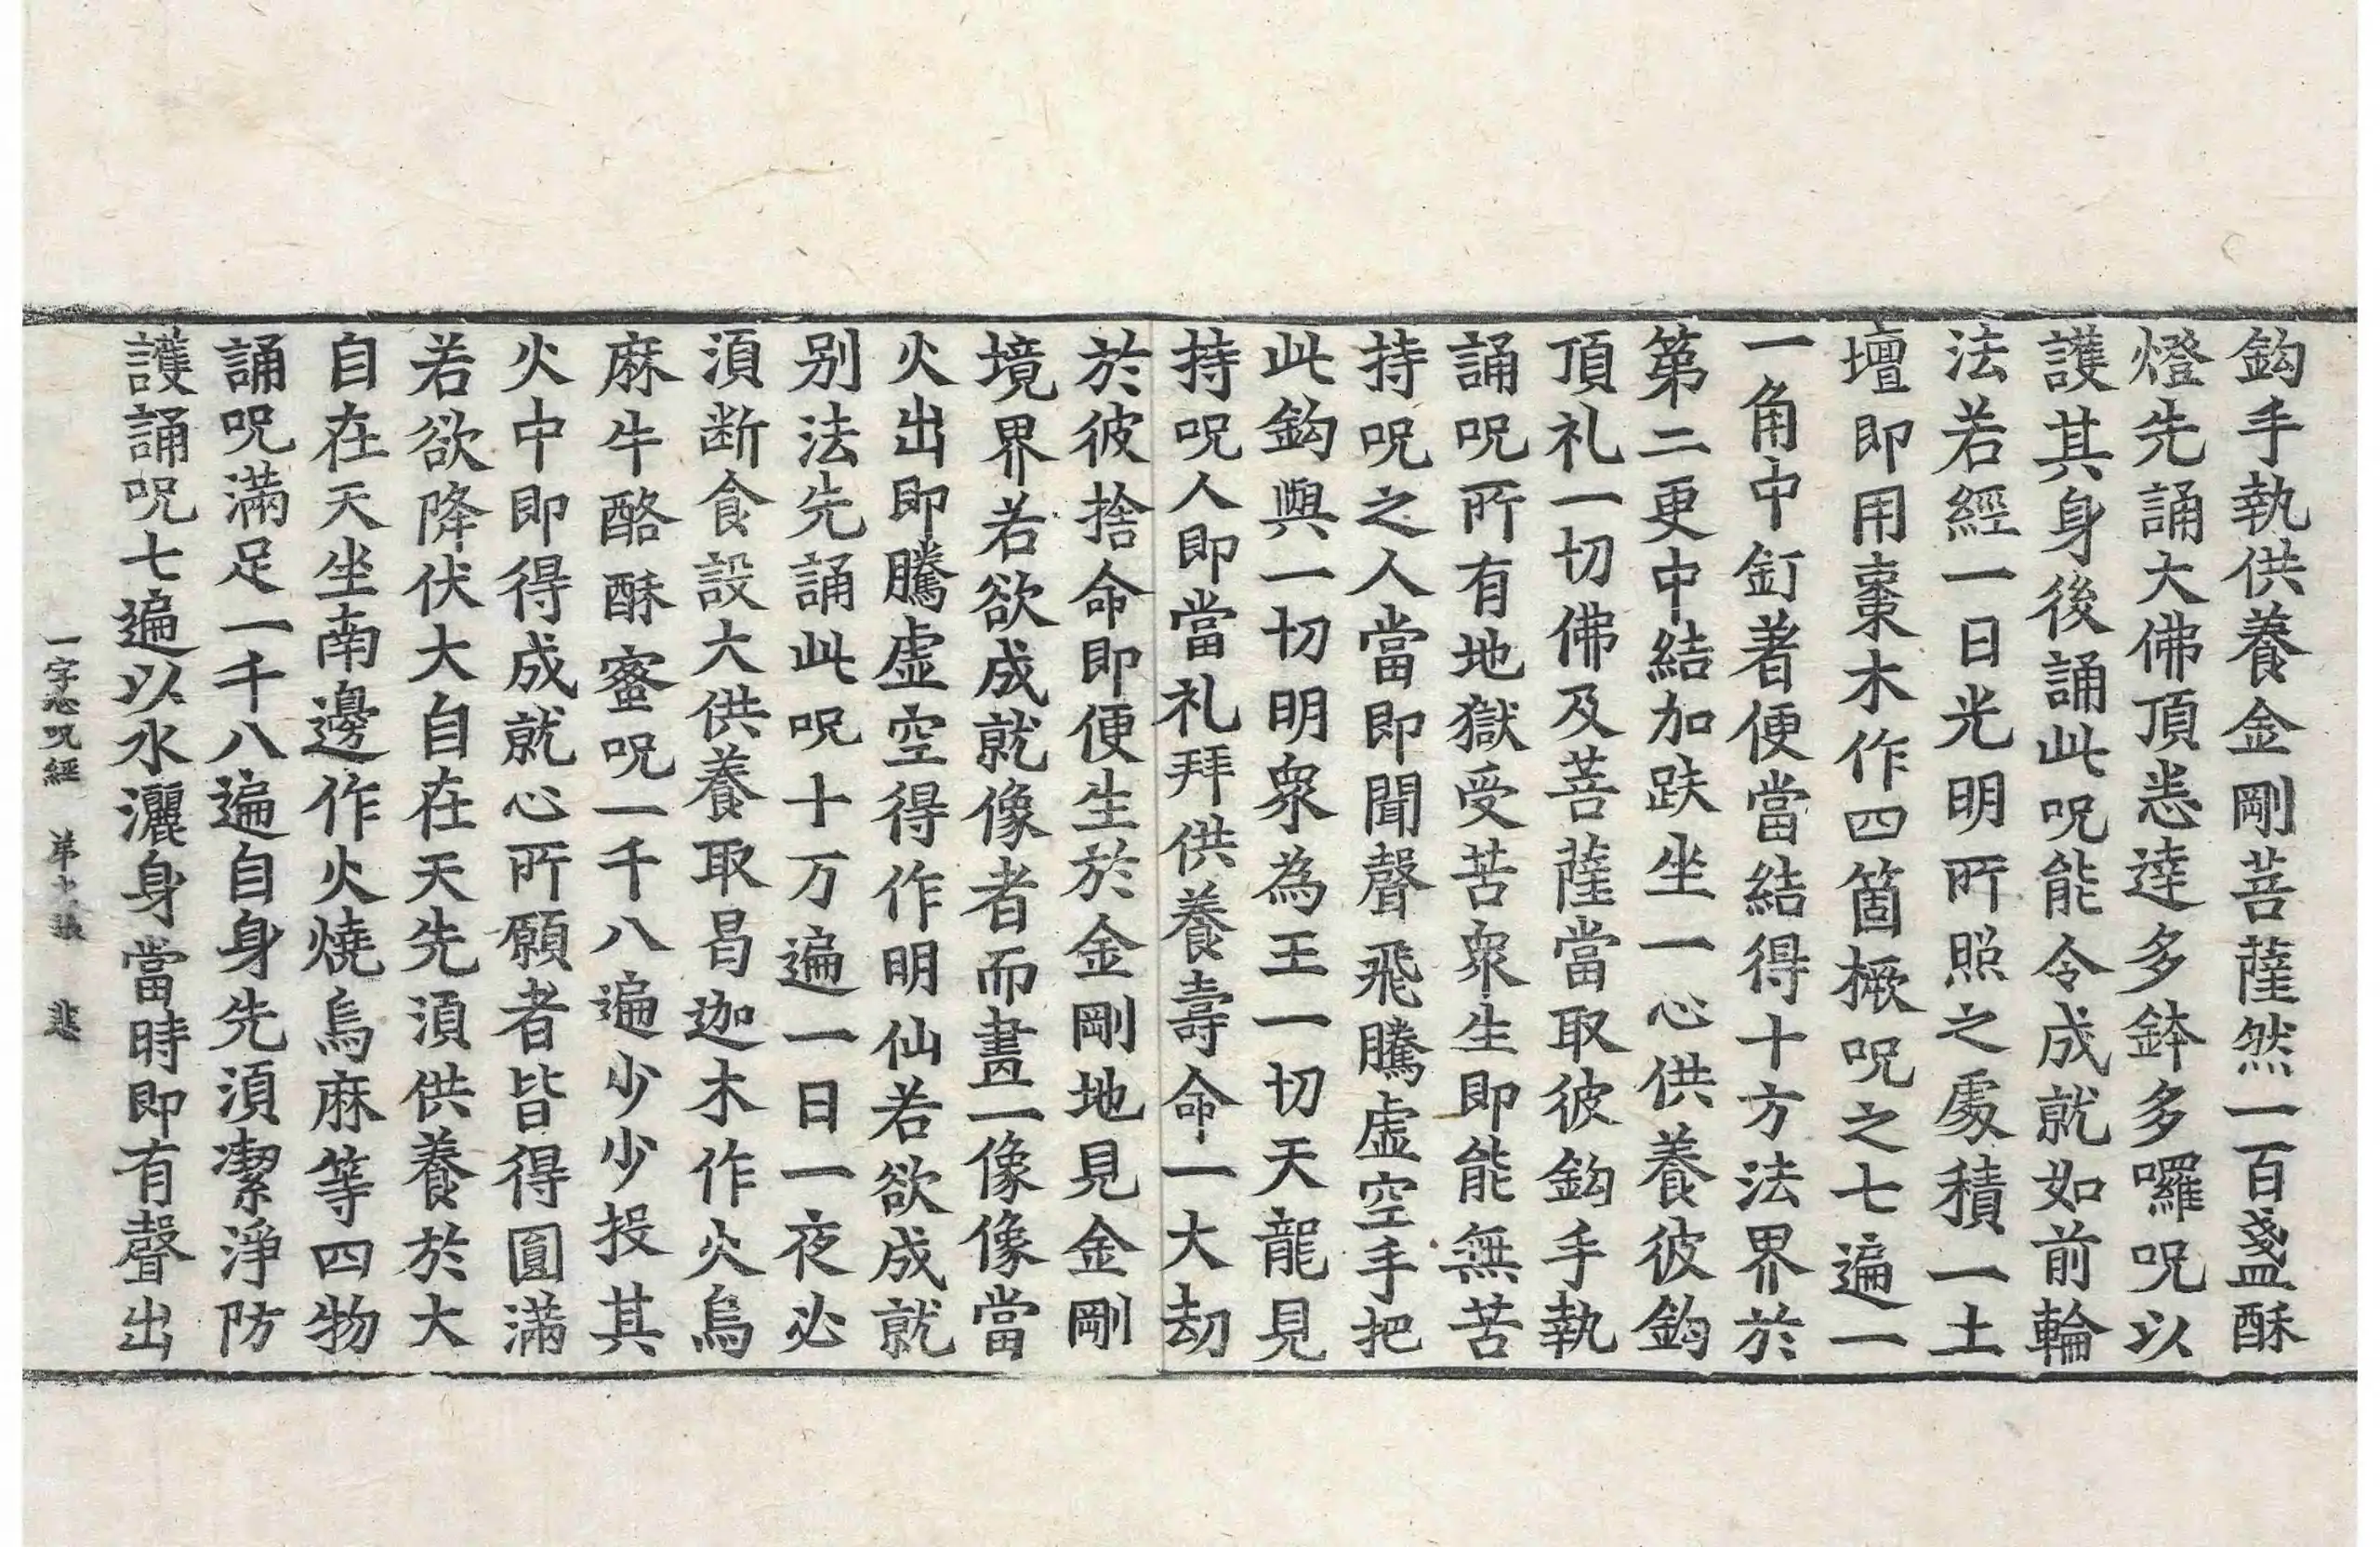 鈎手執供養金剛菩薩然一百盞酥
燈先誦大佛頂悉達多鉢多囉呪以
護其身後誦此呪能令成就如前輪
法若經一日光明所照之處積一土
壇即用棗木作四箇橛呪之七遍一
一角中釘著便當結得十方法界於
第二更中結加趺坐一心供養彼鈎
頂礼一切佛及菩薩當取彼鈎手執
誦呪所有地獄受苦衆生即能無苦
持呪之人當即聞聲飛騰虛空手把
此鈎與一切明衆為王一切天龍見
持呪人即當礼拜供養壽命一大劫
於彼捨命即便生於金剛地見金剛
境界若欲成就像者而畫一像像當
火出即騰虛空得作明仙若欲成就
別法先誦此呪十万遍一日一夜必
須断食設大供養取昌迦木作火烏
麻牛酪酥蜜呪一千八遍少少投其
火中即得成就心所願者皆得圓滿
若欲降伏大自在天先須供養於大
自在天坐南邊作火燒烏麻等四物
誦呪滿足一千八遍自身先須潔淨防
護誦呪七遍以水灑身當時即有聲出
一字心呪經 苐 張 悲